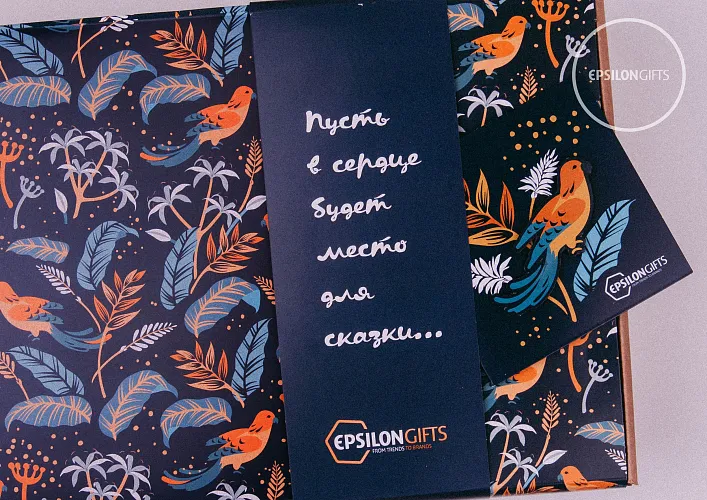 EPSILONGIFTS
Пусть
в сердце
будет
место
для
сказки...
EPSILONGIFTS
EPSILONGIFTS
FROM TRENDS TO BRANDS